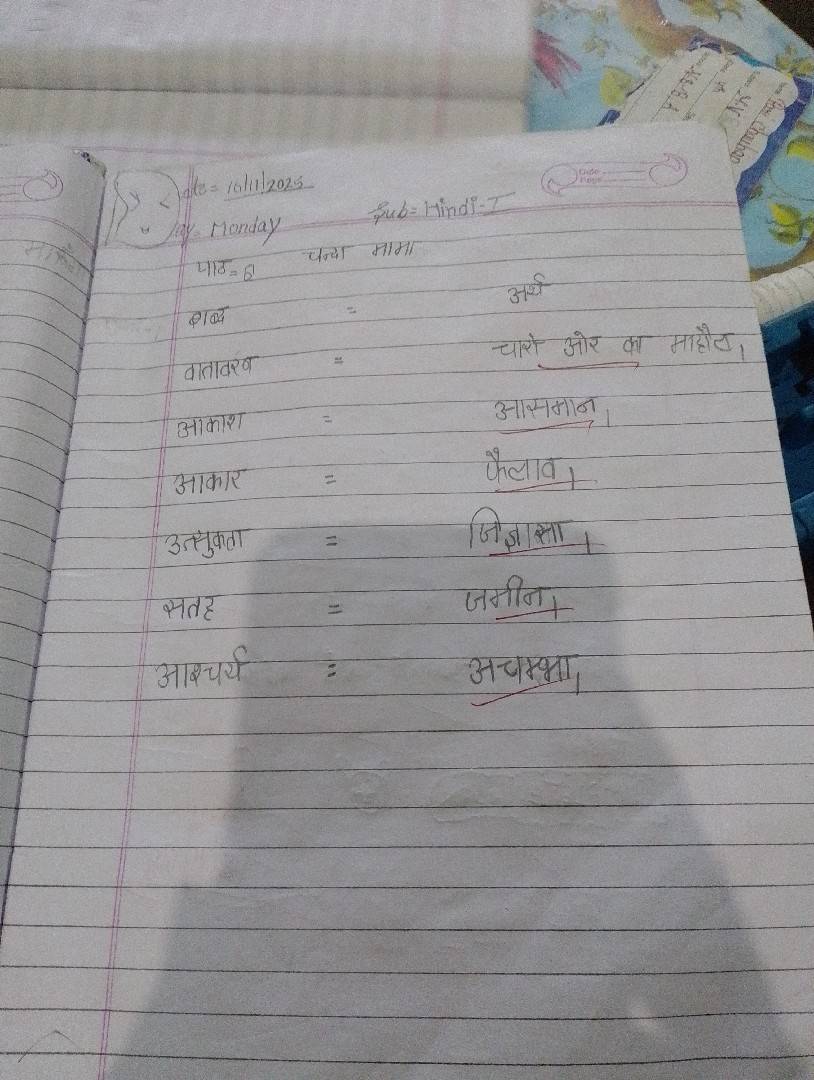 Date = 10/11/2025
Day = Monday
Sub = Hindi-I
Date
Page
पाठ = 6 चन्दा मामा
शब्द = अर्थ
वातावरण = चारो ओर का माहौल।
आकाश = आसमान।
आकार = फैलाव।
उत्सुकता = जिज्ञासा।
सतह = जमीन।
आश्चर्य = अचम्भा।